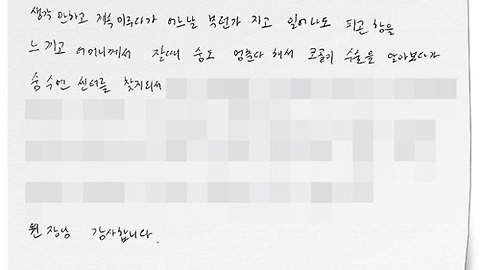 생각 안하고 계획 미루다가 어느날 부턴가 자고 일어나도 피곤함을
느끼고 어머니께서 잘때 숨도 멈춘다 해서 코골이 수술을 알아보다가
숨수면 센터를 찾게되서
원장님 감사합니다.